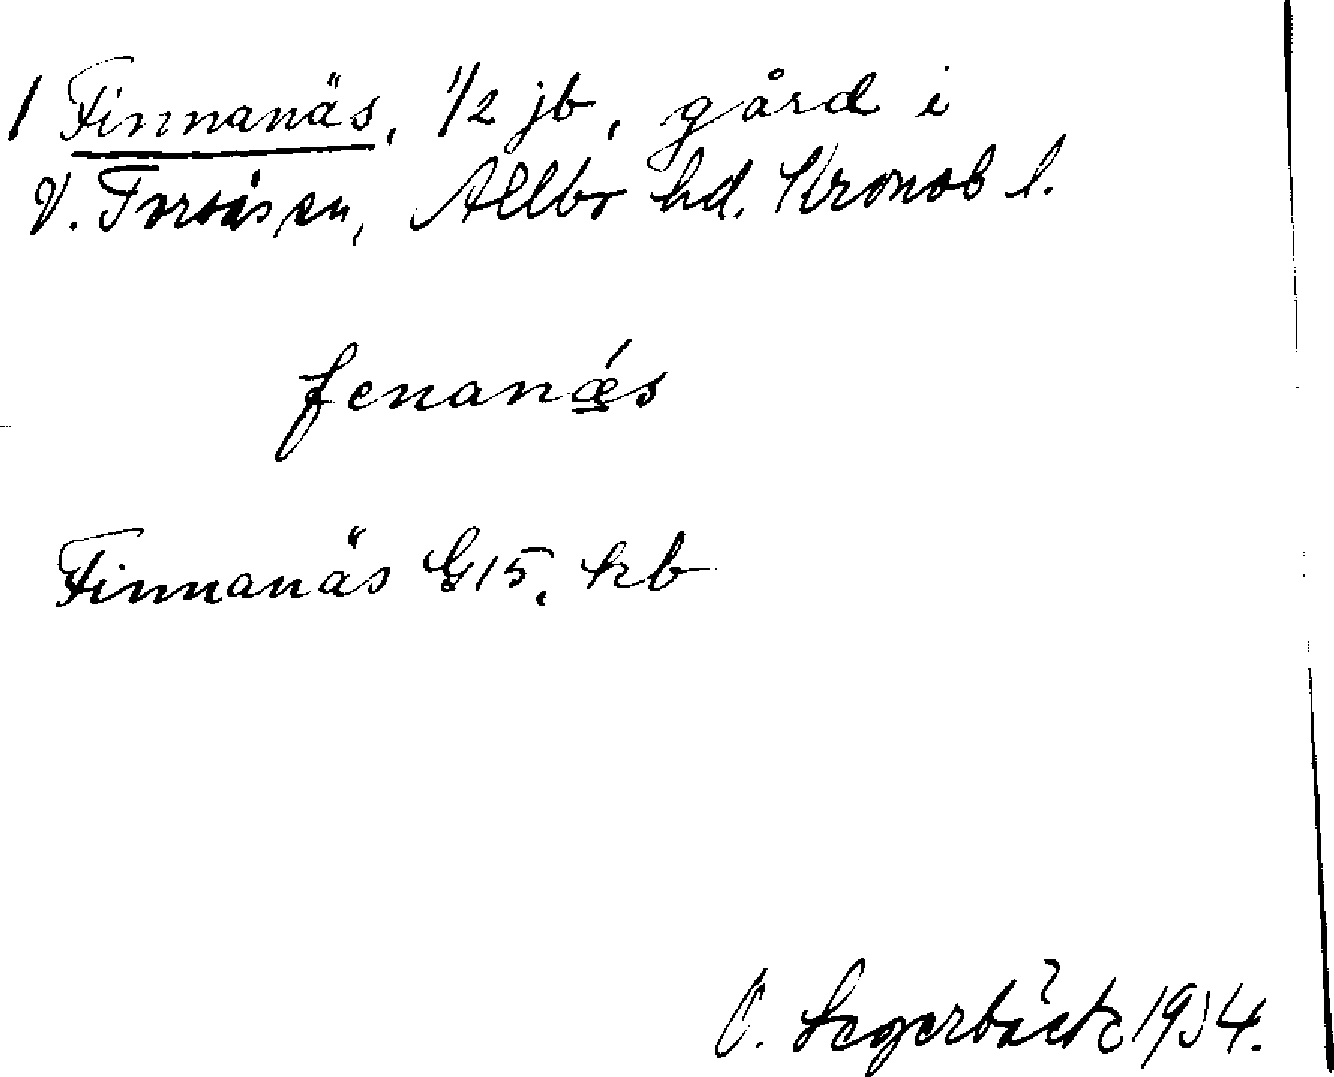 1 Finnanäs, 1/2 jb, gård i
V. Torsås sn, Allbo hd. Kronob l.
fenanǽs
Finnanäs G15, kb
O. Segerbäck 1934.